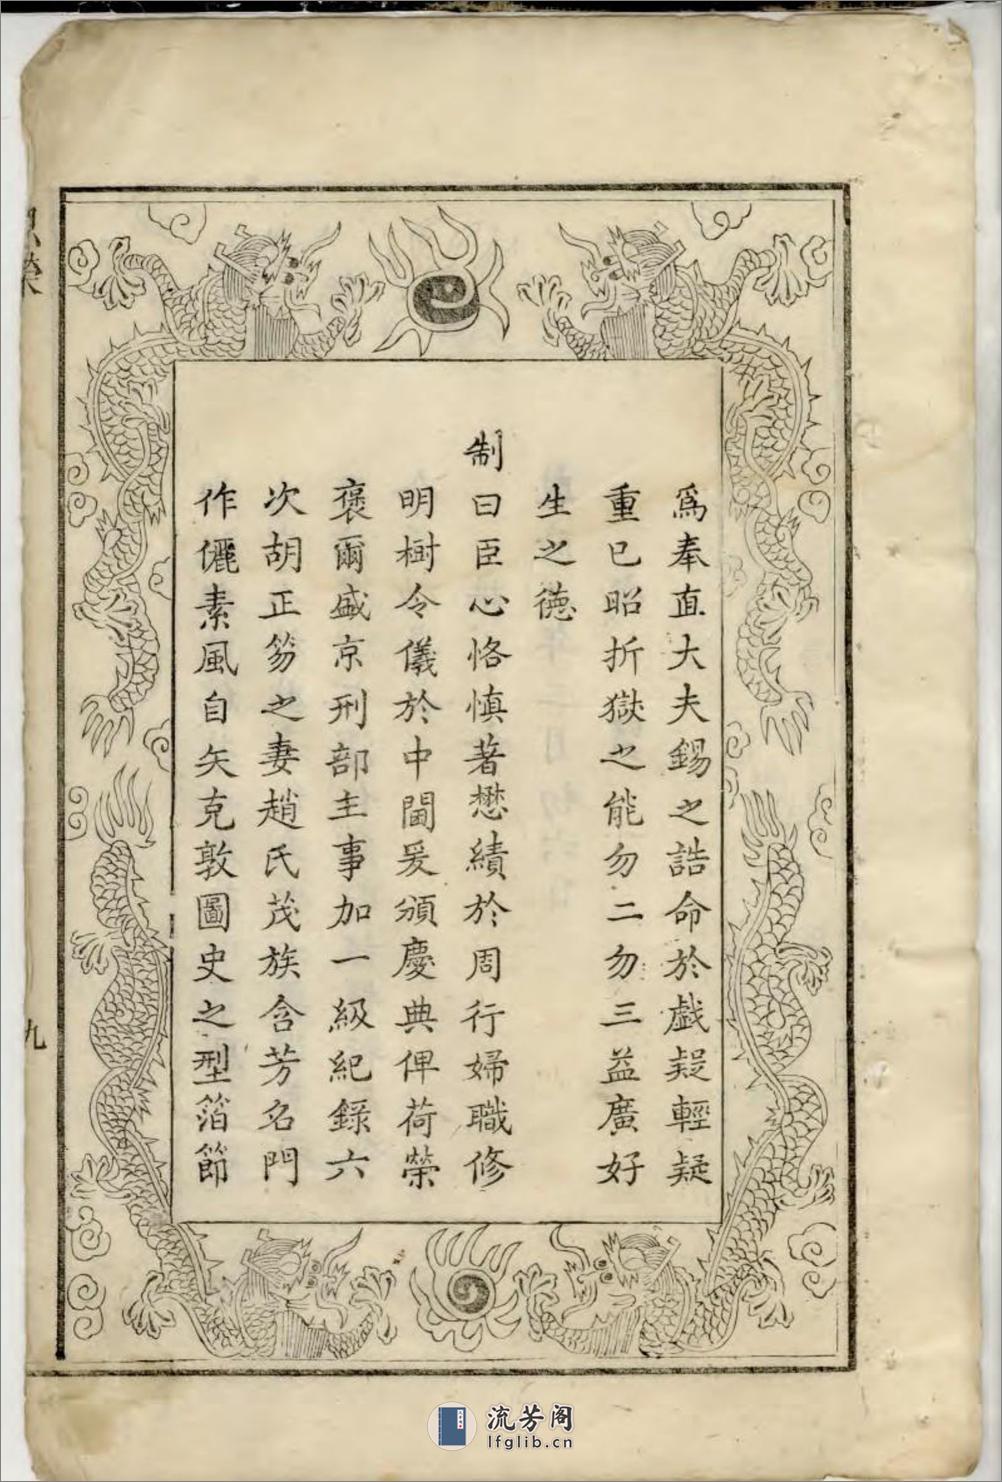 爲奉直大夫錫之誥命於戲疑輕疑
重已昭折獄之能勿二勿三益廣好
生之德
制曰臣心恪慎著懋績於周行婦職修
明樹令儀於中閫爰頒慶典俾荷榮
褒爾盛京刑部主事加一級紀錄六
次胡正笏之妻趙氏茂族含芳名門
作儷素風自矢克敦圖史之型箔節
九
流芳阁
lfglib.cn